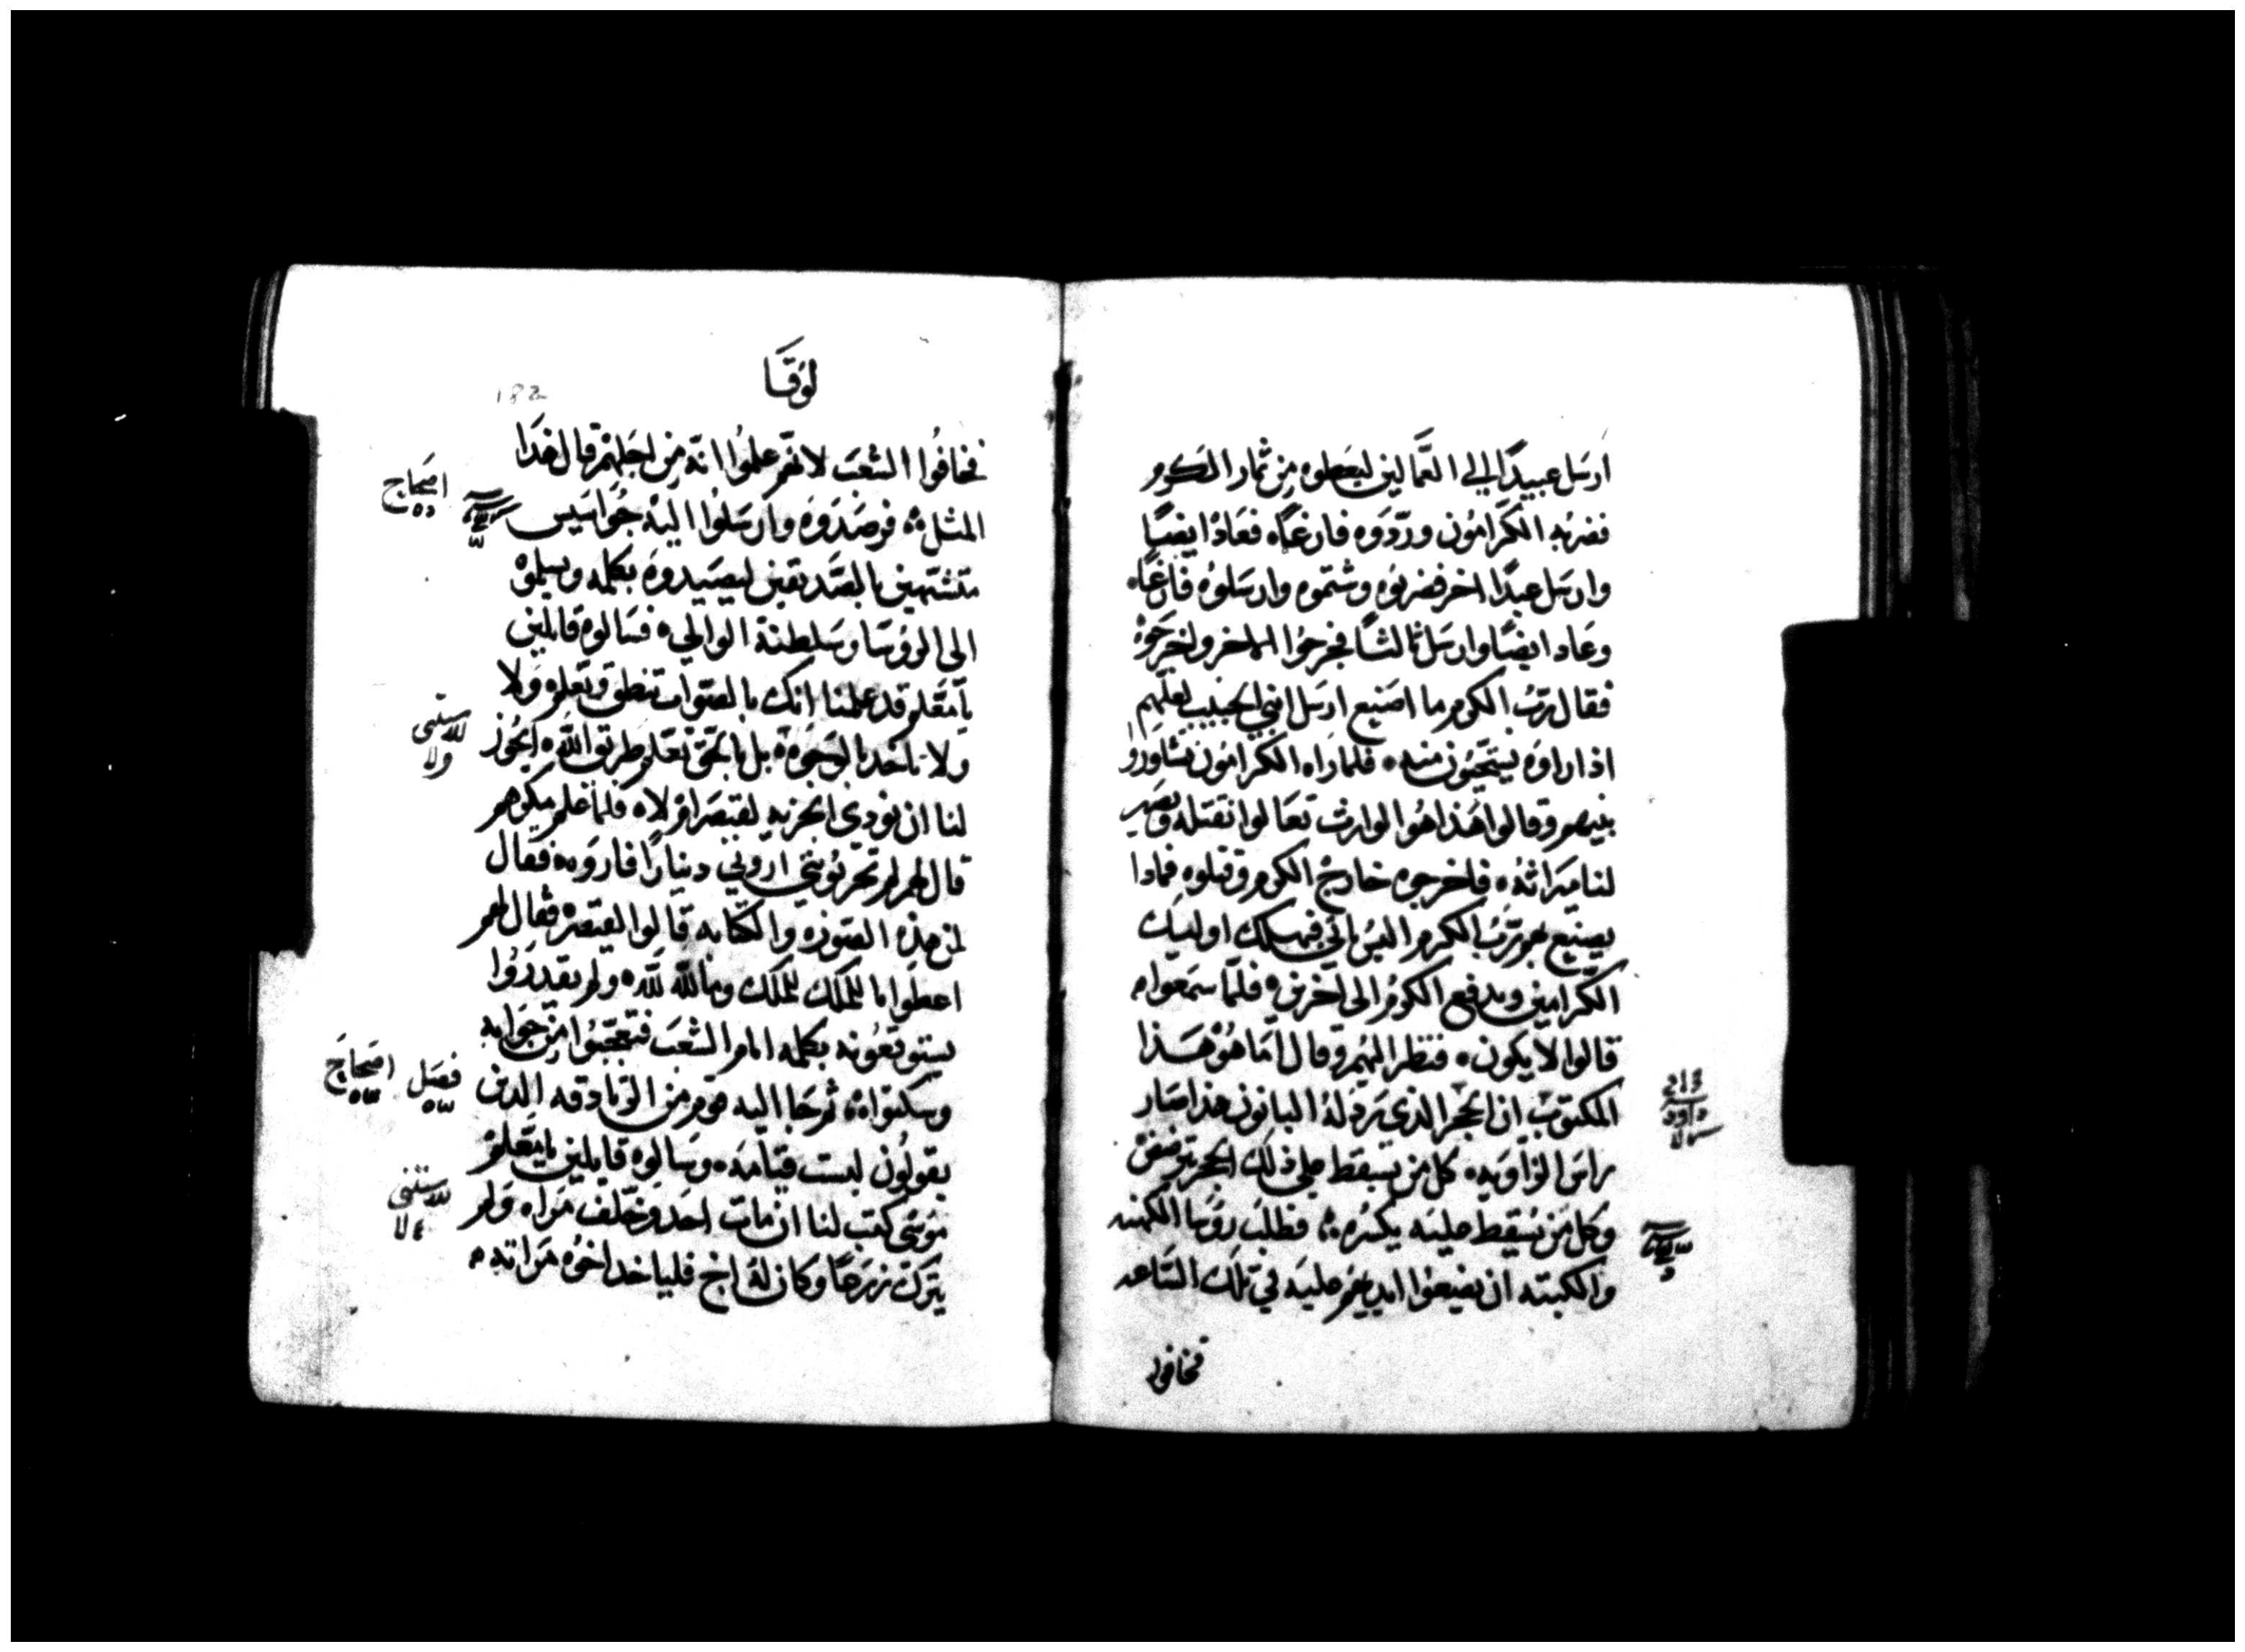 ارسَل عبيدًا الي العَّمالين ليعَطوه مِن ثمار الكَرم
فضربُه الكَرامُون وردّدوَه فارغًاه فعَادْ ايضًا
وارسَل عبدًا اخر فضربوُه وشتموه وارسَلوُه فارغًاه
وعَاد ايضًا وارسَل ثالثًا فجرحُوا الاخر واخرَجَوهْ
فقال ربّ الكرم ما اصَنع ارسَل ابني الحَبيب لعلّهم
اذا راوَه يستَحيُون منه ه فلما رَاه الكرامُون تشاورَوا
بينهم وقالوا هَذا هُوا الوارث تعَالوا نقتله وَيصَير
لنا ميرَاثهُ ه فاخرجوه خارج الكرم وقتلوه فمادا
يصنع بهم ربُ الكرم اليسُ ياتي فيهلك اوليك
الكرامين ويدفع الكرمْ الى اخرين ه فلمّا سمَعَوا ه
قالوا لا يكون ه فنظر اليهُم وقال امَا هُوَ هَذا
المكتوَب ان الحجر الذي رَدلهُ البانون هذا صَار
راسَ الزاويه ه كل من يسَقط علي ذلك الحجر يترضضْ
وكل مَن يسُقِط عليَه يكسرُه ؞ فطلبَ روُسَا الكهنه
والكبته ان يضعوُا ايديهُم عليَه في تلكَ السَاعه
داود
فخافوا
لوُقَا
182
فخافوُا الشعَب لانّهم علموُا انّه مِن اجَلهم قال هَذا
المثل ؞ فرصَدوَه وارسَلوُا اليهْ جُواسَيس
متشبّهين بالصَّديقين ليصَيدوهَ بكلمه ويسلموْه
الى الروُسَا وسَلطنة الوالي ه فسَالوهْ قايلين
يا مَعَلم قد علمنا انك بالصَوابَ تنطق وتَعلم وَلا
وَلا تاخد بالوَجوَهْ بل بالحَق تعَلم طريق اللّه ه ايجُوز
لنا ان نوَدي الجزيه لقيصَر ام لاه فلما علم مكرهم
قال لهم لم تجرّبوُني اروُني دينارًا فاروَه ه فقال
لمن هذه الصَوَره والكتابه قالوا لقيصَر ه فقال لهم
اعطَوا ما للملك للملك وما للّه للّه ه ولم يقدرَوُا
يستوقعَوُنه بكلمه امام الشعَب فتعجّبوُا مِن جَوابه
وسكتوا ؞ ثم جَا اليه قوم من الزنادقه الدين
يقولوُن ليست قيامَه ه وسَالوَه قايلين يا معَلم
موُسَى كتب لنا ان مات احَد وخَلف مَراه ه وَلم
يترك زرَعًا وكان لهُ اخ فلياخد اخوُه مَراته ه
اصَحاح
فصَل اصَحاح